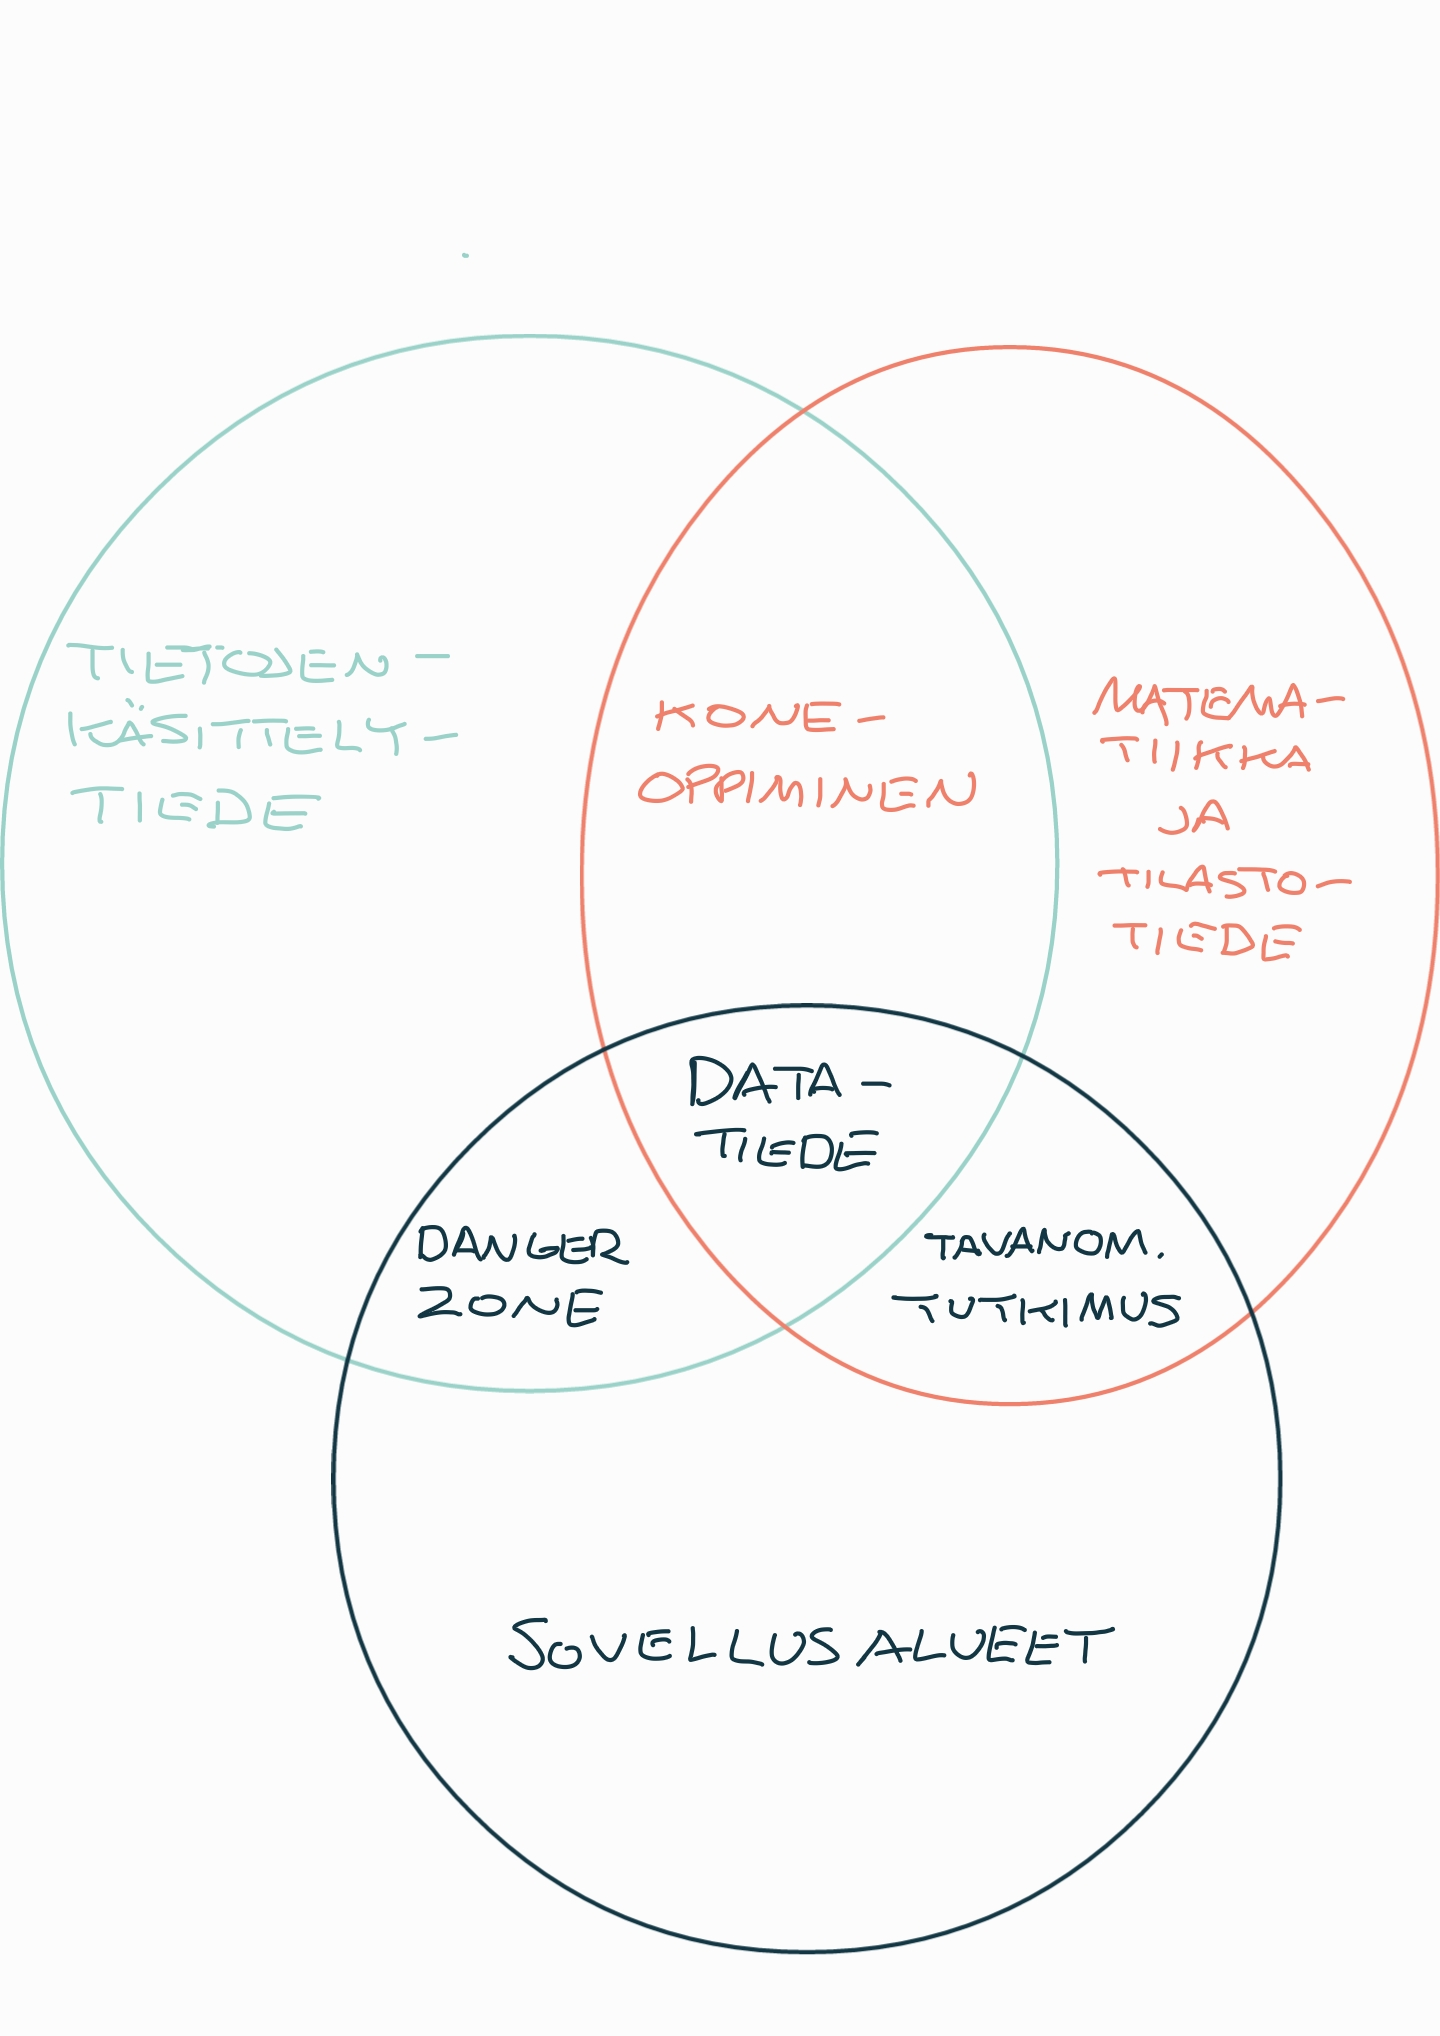 TIETOJEN-
KÄSITTELY-
TIEDE
KONE-
OPPIMINEN
MATEMA-
TIIKKA
JA
TILASTO-
TIEDE
DATA-
TIEDE
DANGER
ZONE
TAVANOM.
TUTKIMUS
SOVELLUSALUEET